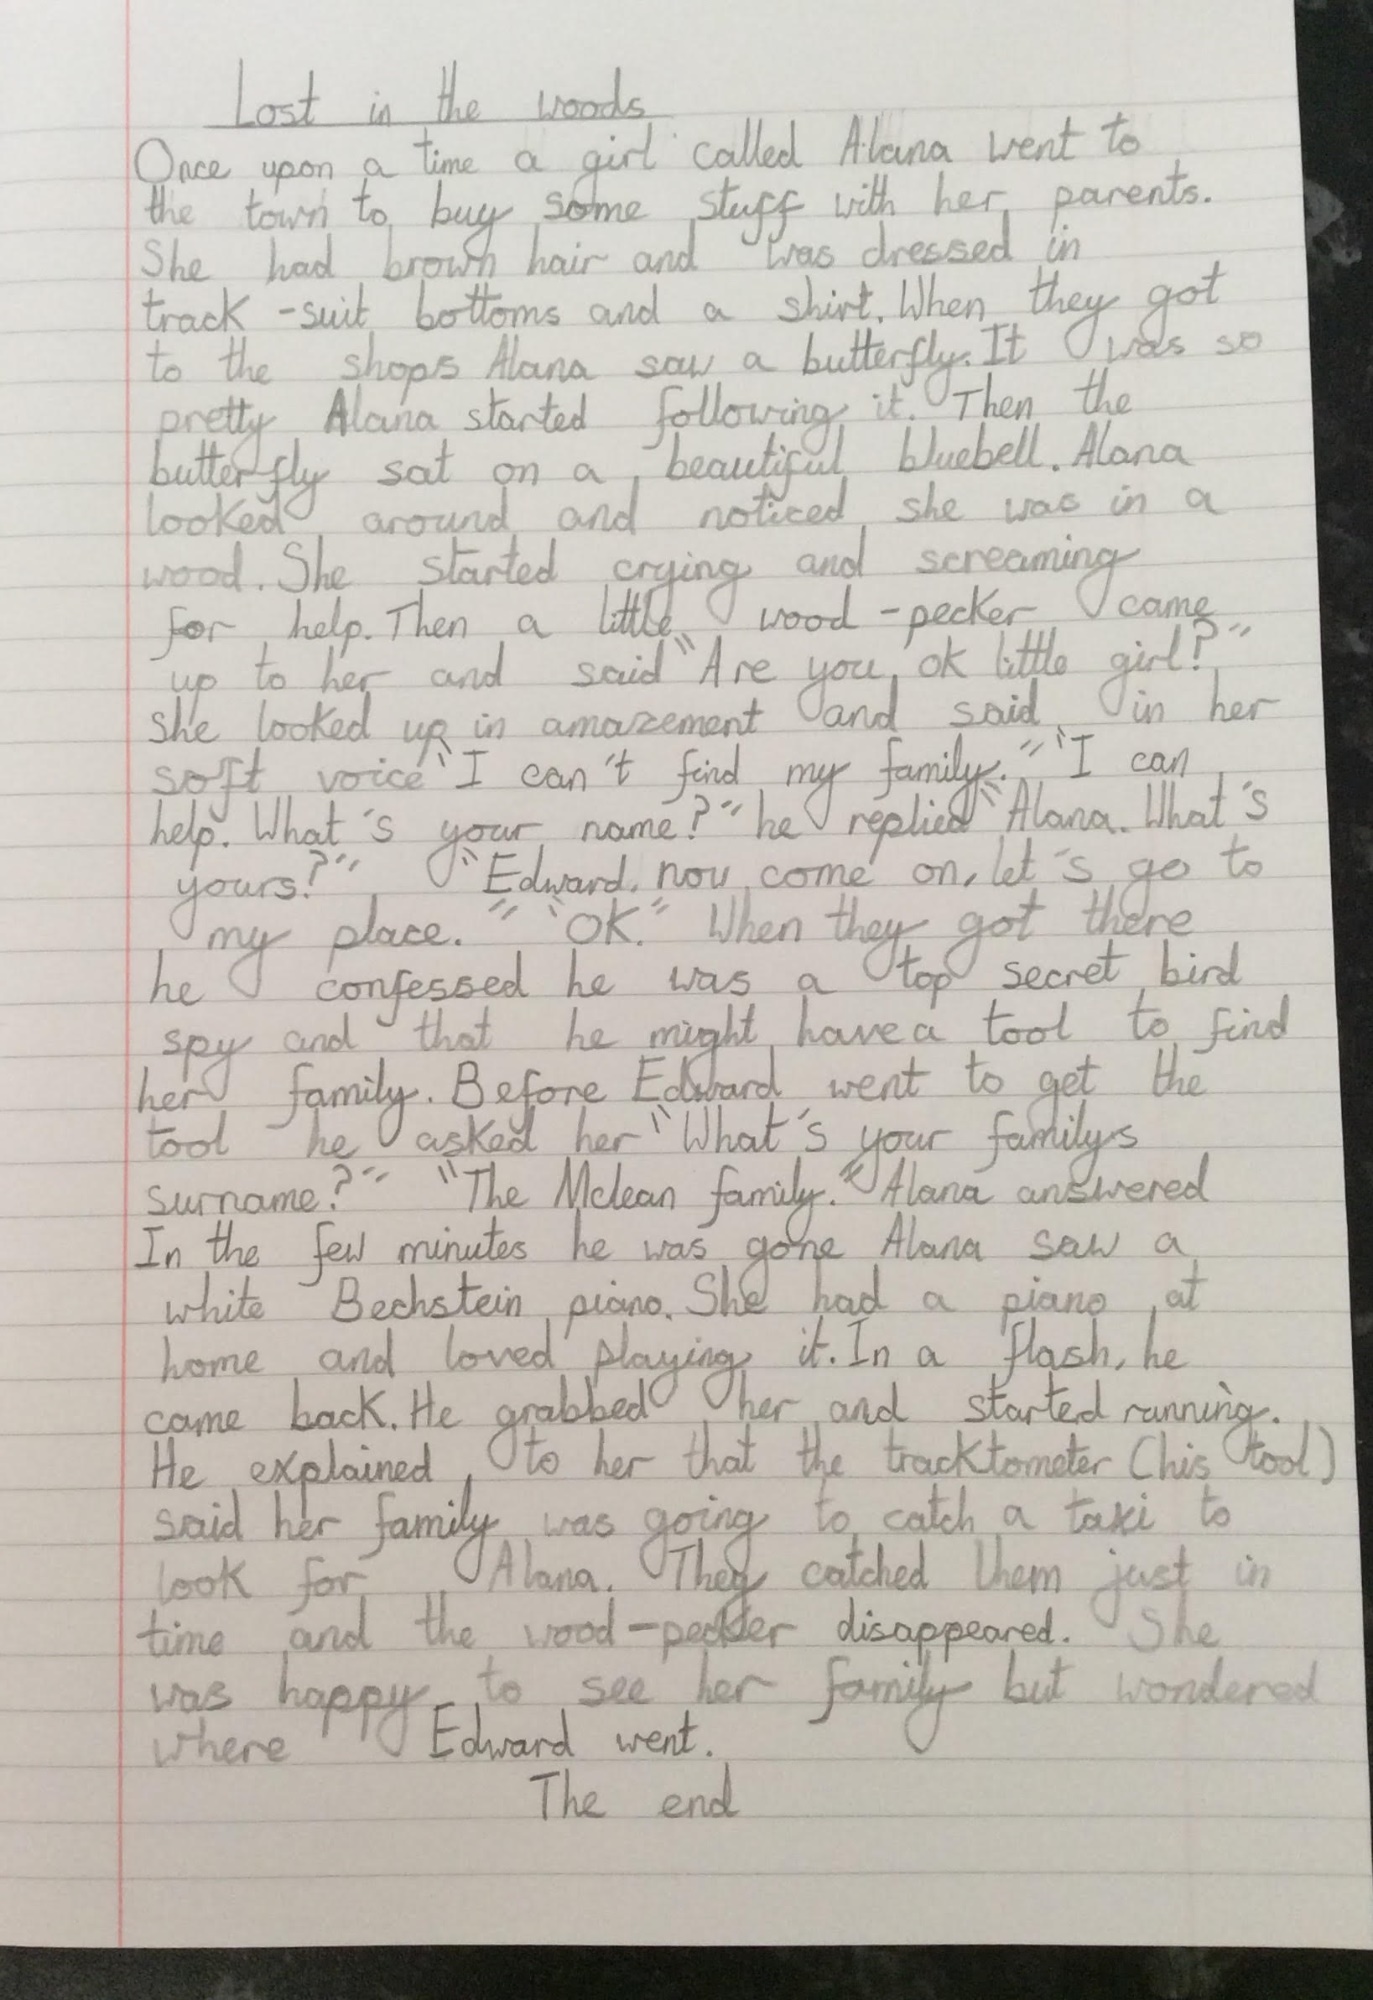 Lost in the woods
Once upon a time a girl called Alana went to
the town to buy some stuff with her parents.
She had brown hair and was dressed in
track-suit bottoms and a shirt. When they got
to the shops Alana saw a butterfly. It was so
pretty Alana started following it. Then the
butterfly sat on a beautiful bluebell. Alana
looked around and noticed she was in a
wood. She started crying and screaming
for help. Then a little wood-pecker came
up to her and said "Are you ok little girl?"
she looked up in amazement and said in her
soft voice "I can't find my family." "I can
help. What's your name?" he replied "Alana. What's
yours?" "Edward. now come on, let's go to
my place." "OK." When they got there
he confessed he was a top secret bird
spy and that he might have a tool to find
her family. Before Edward went to get the
tool he asked her "What's your familys
surname?" "The Mclean family." Alana answered
In the few minutes he was gone Alana saw a
white Bechstein piano. She had a piano at
home and loved playing it. In a flash, he
came back. He grabbed her and started running.
He explained to her that the tracktometer (his tool)
said her family was going to catch a taxi to
look for Alana. They catched them just in
time and the wood-pecker disappeared. She
was happy to see her family but wondered
where Edward went.
The end